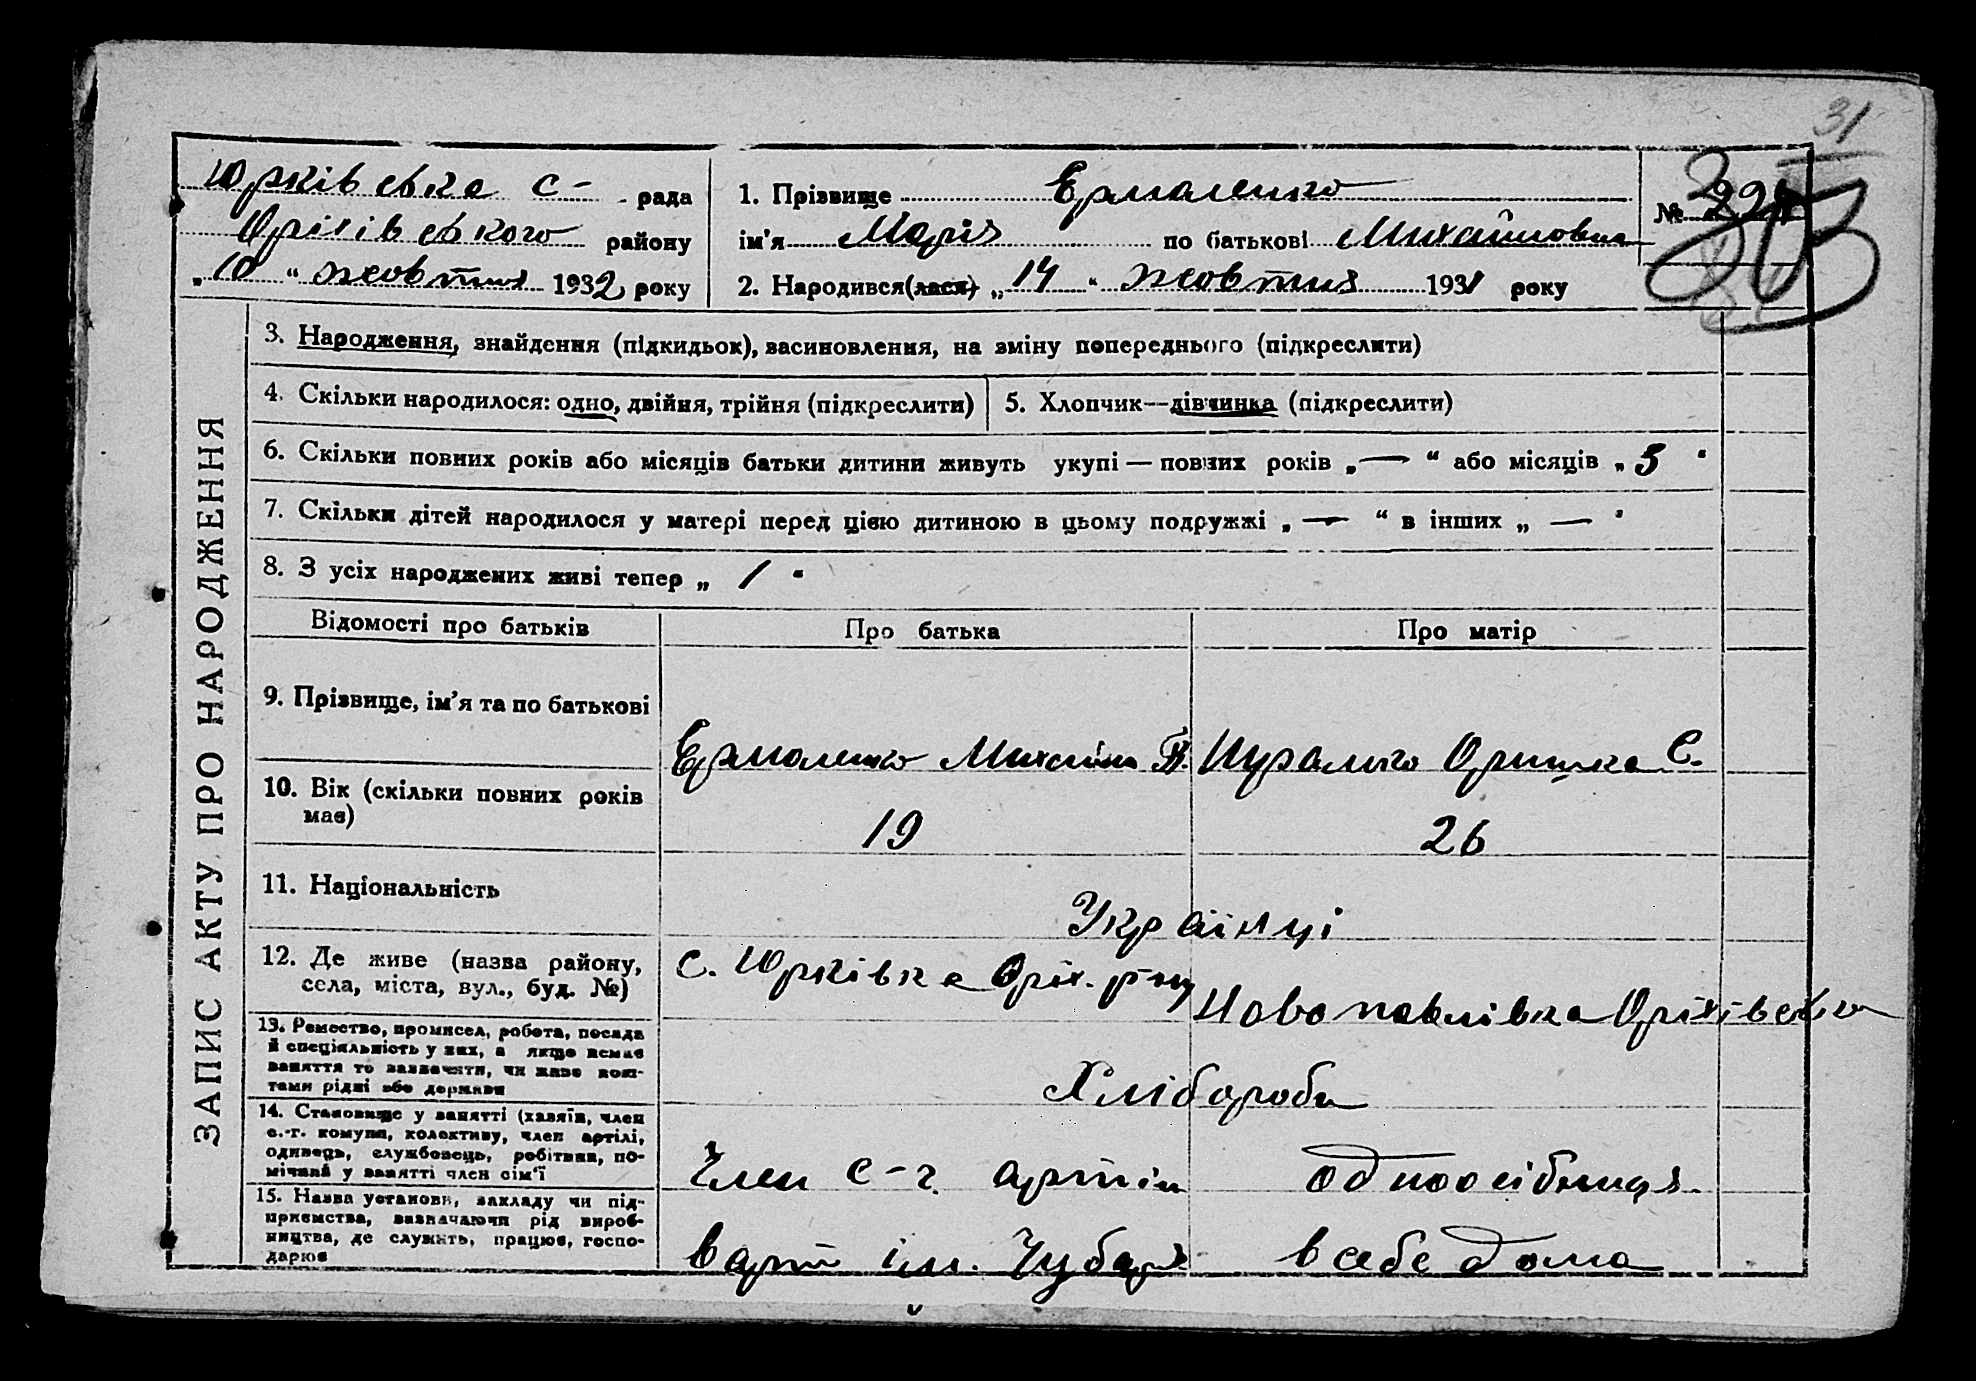 31
Юрківська с- рада
Оріхівського району
„10“ жовтня 1932 року
1. Прізвище Ермоленко
ім'я Марія по батькові Михайловна
2. Народився(лася) „14“ жовтня 1931 року
№
ЗАПИС АКТУ ПРО НАРОДЖЕННЯ
3. Народження, знайдення (підкидьок), засиновлення, на зміну попереднього (підкреслити)
4. Скільки народилося: одно, двійня, трійня (підкреслити) 5. Хлопчик—дівчинка (підкреслити)
6. Скільки повних років або місяців батьки дитини живуть укупі — повних років „—“ або місяців „5“
7. Скільки дітей народилося у матері перед цією дитиною в цьому подружжі „—“ в інших „—“
8. З усіх народжених живі тепер „1“
Відомості про батьків Про батька Про матір
9. Прізвище, ім'я та по батькові
Ермоленко Михайло П. Оришка С.
10. Вік (скільки повних років
має)
19 26
11. Національність
Українці
12. Де живе (назва району,
села, міста, вул., буд. №)
с. Юрківка Оріх. р-ну Новопавлівка Оріхівсько
13. Ремество, промисел, робота, посада
й спеціяльність у них, а якщо немає
заняття то зазначити, чи живе кош-
тами рідні або держави
Хлібороби
14. Становище у занятті (хазяїн, член
с.-г. комуни, колективу, член артілі,
одинець, службовець, робітник, по-
мічний у занятті член сім'ї
Член с-г. артіли одноосібниця
15. Назва установи, закладу чи під-
приємства, зазначаючи рід вироб-
ництва, де служить, працює, госпо-
дарює
в арт ім. Чубаря в себе дома